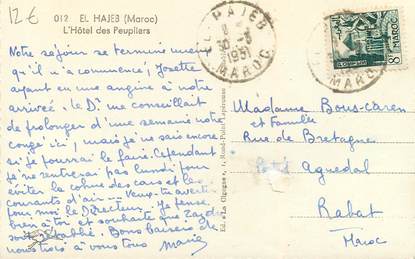 12€
012 EL HAJEB (Maroc)
L'Hôtel des Peupliers
EL HAJEB
1951
MAROC
MAROC
8F
Notre séjour se termine mieux
qu'il n'a commencé, Josette
ayant eu une angine à notre
arrivée. Le Dr me conseillait
de prolonger d'une semaine notre
congé ici, mais je ne sais encore
si je pourrai le faire. Cependant
je ne rentrerai pas lundi pour
éviter la cohue des cars et les
courants d'air — Veux-tu avertir
pour moi le Directeur. Je pense
bien à toi et souhaite que
soit rétabli. Bons baisers de
nous trois à vous tous Marie
Madame Bous-Caren
et Famille
Rue de Bretagne
Aguedal
Rabat
Maroc